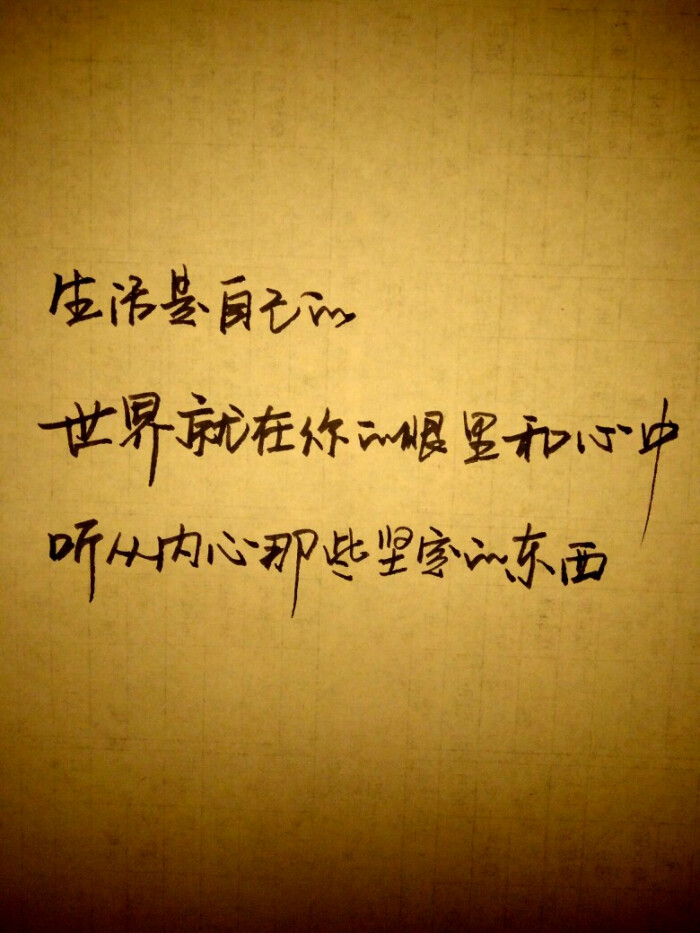 生活是自己的
世界就在你的眼里和心中
听从内心那些坚定的东西